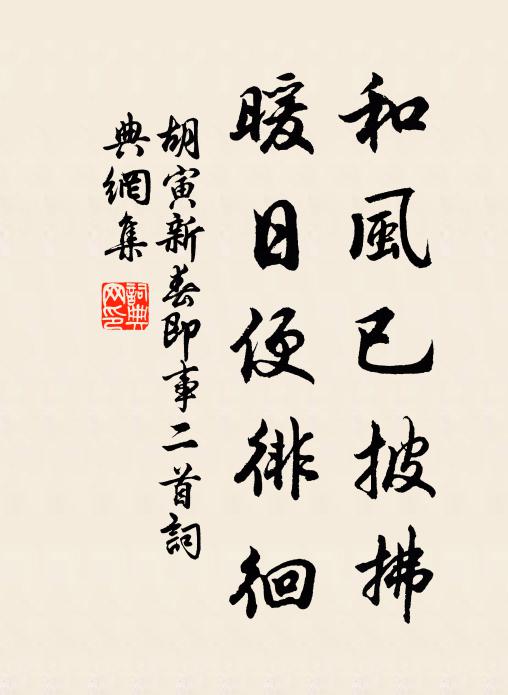 和風已披拂
暖日便徘徊
胡寅新春即事二首詞
典網集
詞典网印